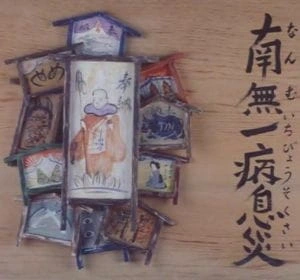 南無一病息災
なんむいちびょうそくさい
奉納
めめ